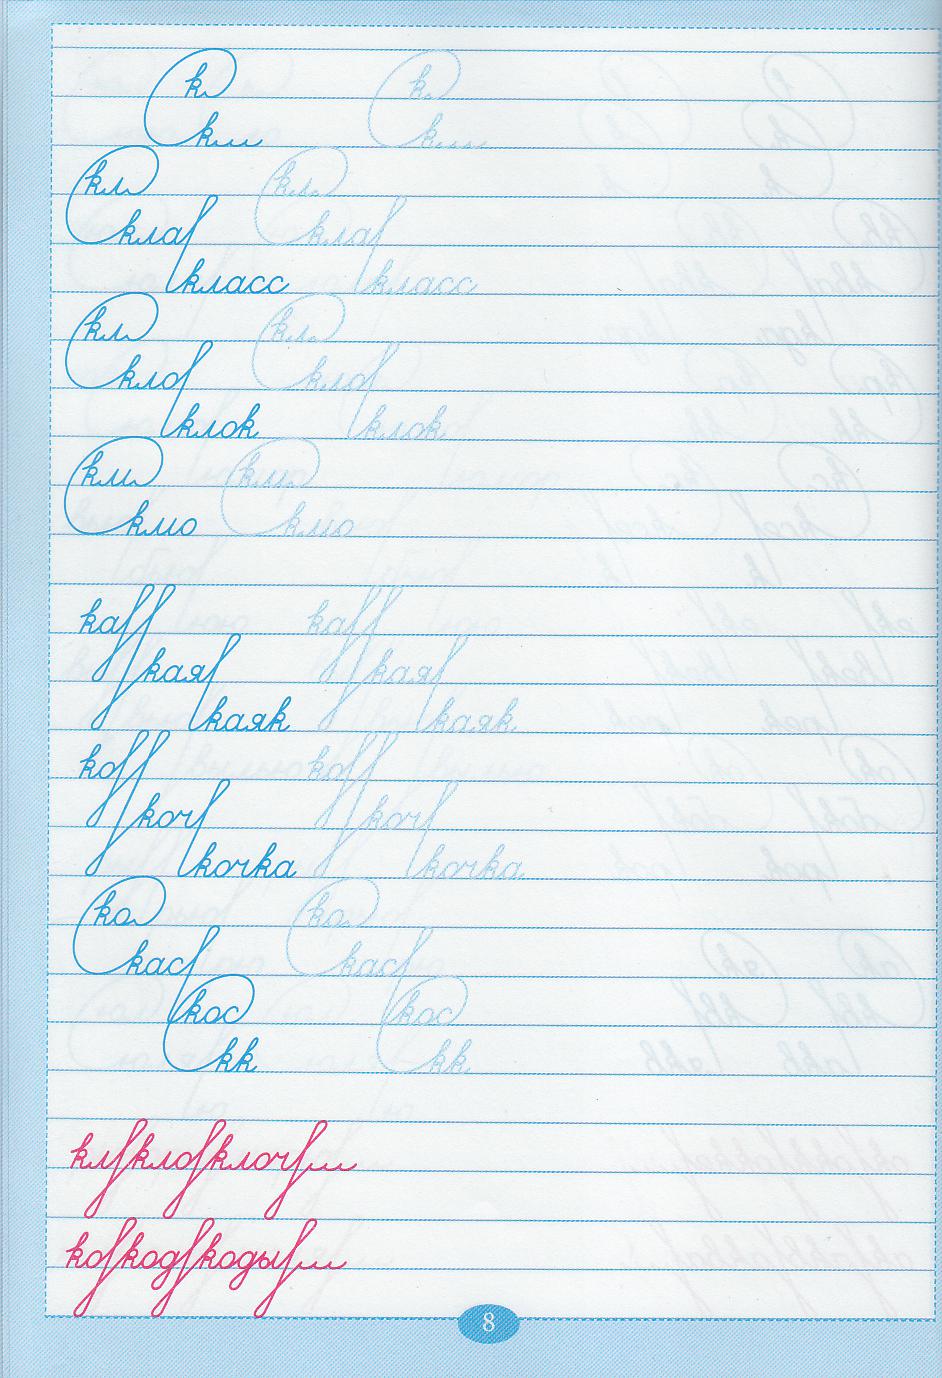 к к
км км
кл кл
кла кла
класс класс
кл кл
кло кло
клок клок
км км
кмо кмо
ка ка
кая кая
каяк каяк
ко ко
коч коч
кочка кочка
ко ко
кас кас
кос кос
кк кк
кл кло клоч
ко код коды
8